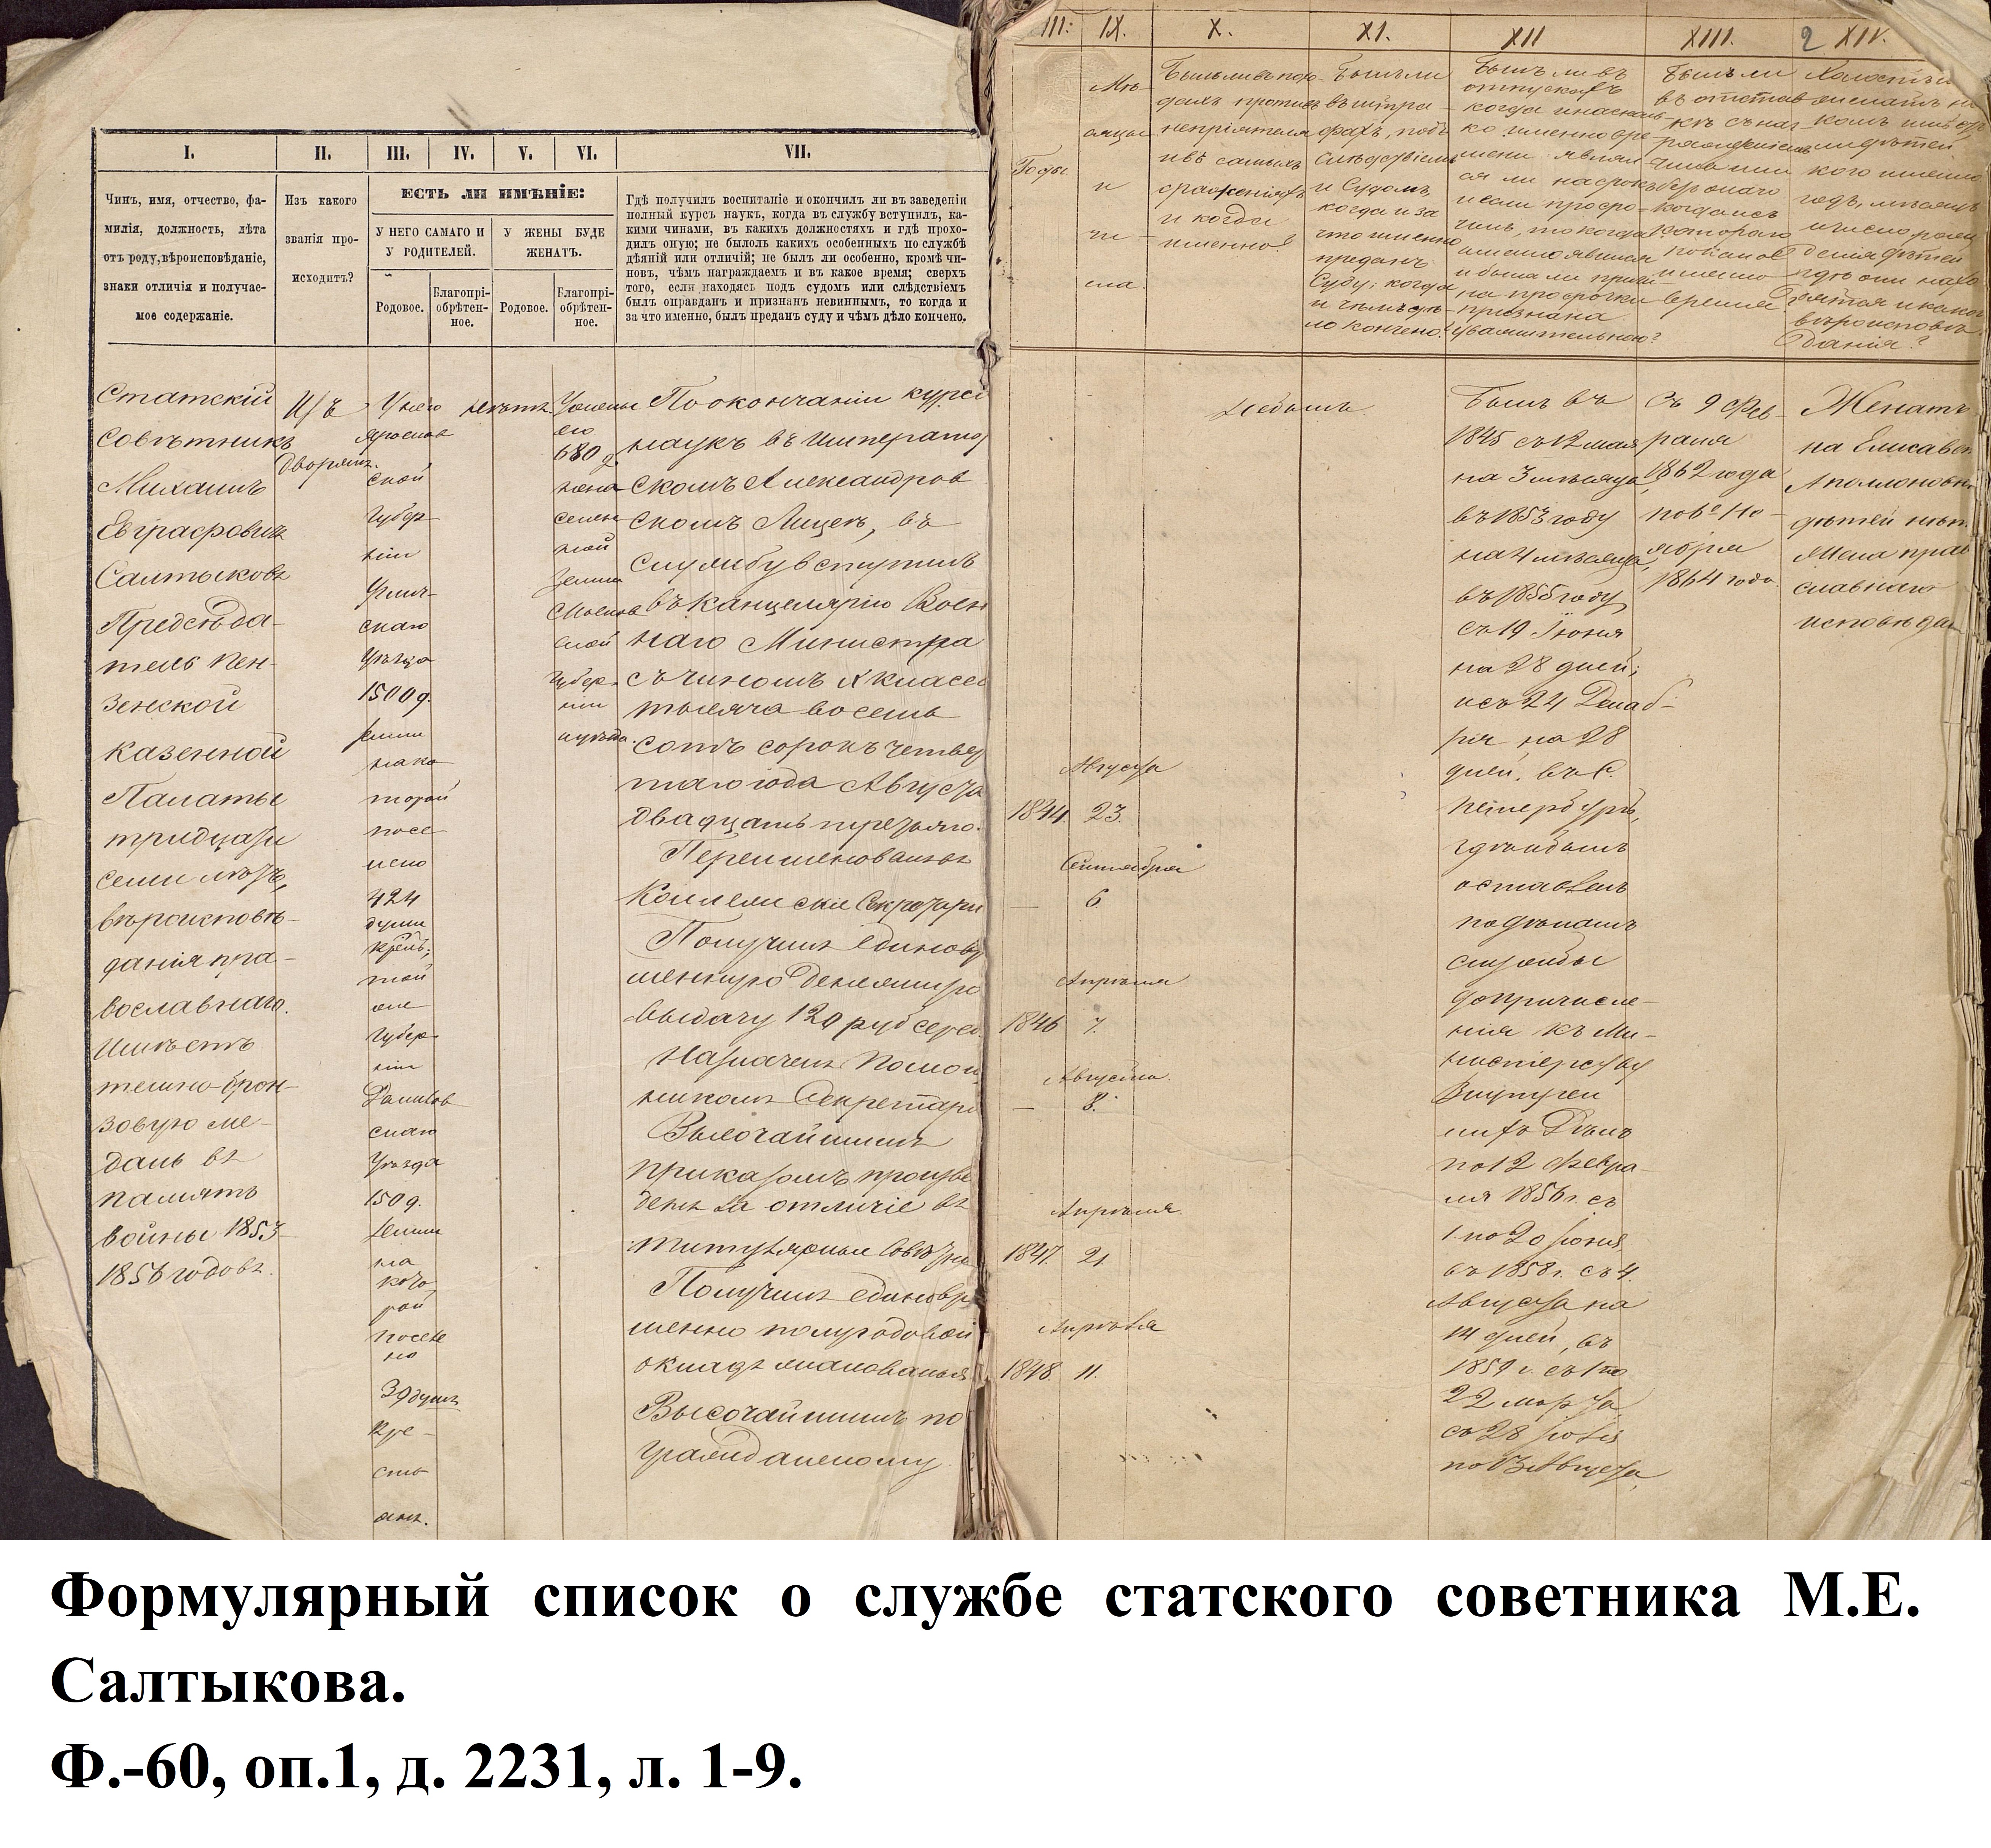 I. II. III. IV. V. VI. VII.
Чинъ, имя, отчество, фа-
милія, должность, лѣта
отъ роду, вѣроисповѣданіе,
знаки отличія и получае-
мое содержаніе.
Изъ какого
званія про-
исходитъ?
ЕСТЬ ЛИ ИМѢНІЕ:
У НЕГО САМАГО И
У РОДИТЕЛЕЙ.
У ЖЕНЫ БУДЕ
ЖЕНАТЪ.
Родовое.
Благопрі-
обрѣтен-
ное.
Родовое.
Благопрі-
обрѣтен-
ное.
Гдѣ получилъ воспитаніе и окончилъ ли въ заведеніи
полный курсъ наукъ, когда въ службу вступилъ, ка-
кими чинами, въ какихъ должностяхъ и гдѣ прохо-
дилъ оную; не былоль какихъ особенныхъ по службѣ
дѣяній или отличій; не былъ ли особенно, кромѣ чи-
новъ, чѣмъ награждаемъ и въ какое время; сверхъ
того, если находясь подъ судомъ или слѣдствіемъ
былъ оправданъ и признанъ невиннымъ, то когда и
за что именно, былъ преданъ суду и чѣмъ дѣло кончено.
Статскій
Совѣтникъ
Михаилъ
Евграфовичъ
Салтыковъ
Предсѣда-
тель Пен-
зенской
казенной
Палаты
тридцати
семи лѣтъ,
вѣроисповѣ-
данія пра-
вославнаго.
Имѣетъ
темно-брон-
зовую ме-
даль въ
память
войны 1853
1856 годовъ.
Изъ
Дворянъ.
У него
Ярослав
ской
Губер-
ніи
Углич-
скаго
Уѣзда
1500 д.
земли
на ко-
торой
посе-
лено
424
души
крест;
той
же
Губер-
ніи
Данилов
скаго
Уѣзда
150 д.
земли
на
кото
рой
поселе
но
39 душъ
кре-
сть
янъ.
нѣтъ.
У жены
его
680 д.
нена-
селен
ной
земли
Владимір
ской
Губер-
ніи
и уѣзда.
По окончаніи курса
наукъ въ Император
скомъ Александров
скомъ Лицеѣ, въ
службу вступилъ
въ Канцелярію Воен
наго Министра
съ чиномъ X класса
тысяча восемь
сотъ сорокъ четвер
таго года Августа
двадцать третьяго.
Переименованъ
Коллежскимъ Секретаремъ
Получилъ единовре
менную денежную
выдачу 120 руб. сереб.
Назначенъ Помощ
никомъ Секретаря
Высочайшимъ
приказомъ произве
денъ за отличіе въ
титулярные Совѣтни
Получилъ единовре
менно полугодовой
окладъ жалованья
Высочайшимъ по
гражданскому
III: IX. X. XI. XII XIII. 2 XIV.
Годы.
Мѣ-
сяцы
и
чи-
сла.
Былъ ли въ похо-
дахъ противъ
непріятеля
и въ самыхъ
сраженіяхъ
и когда
именно?
Былъ ли
въ штра-
фахъ, подъ
слѣдствіемъ
и Судомъ,
когда и за
что именно
преданъ
Суду; когда
и чѣмъ дѣ-
ло кончено?
Былъ ли въ
отпускахъ
когда и насколь-
ко именно вре-
мени являл
ся ли на срокъ
и если просро-
чилъ, то когда
именно явился
и была ли причи-
на просрочки
признана
уважительною?
Былъ ли
въ отстав-
кѣ съ наг-
ражденіемъ
чина или
безъ онаго
когда и съ
котораго
по какое
именно
время?
Холостъ и
ли женатъ на
комъ имѣетъ
ли дѣтей
кого именно
годъ, мѣсяцъ
и число рож
денія дѣтей
гдѣ они нахо
дятся и какого
вѣроисповѣ-
данія?
Августа
1844. 23.
Сентября
— 6
Апрѣля
1846 7.
Августа.
— 8.
Апрѣля.
1847. 21
Апрѣля
1848. 11.
Не былъ
Былъ въ
1845 съ 12 мая
на 3 мѣсяца,
въ 1853 году
на 4 мѣсяца,
въ 1855 году
съ 19 Іюня
на 28 дней;
и съ 24 Декаб-
ря на 28
дней. въ С.
Петербургъ,
гдѣ и былъ
оставленъ
по дѣламъ
службы
до причисле-
нія къ Ми-
нистерству
Внутрен
нихъ Дѣлъ
по 12 Февра-
ля 1856 г. съ
1 по 20 Іюня,
въ 1858 г. съ 4
Августа на
14 дней, въ
1859 г. съ 1 по
22 марта
съ 28 Іюля
по 13 Августа,
Съ 9 Фев-
раля
1862 года
по 6е Но-
ября
1864 года.
Женатъ
на Елисавет
Аполлоновн
дѣтей нѣт.
Жена прав
славнаго
исповѣдан
Формулярный список о службе статского советника М.Е.
Салтыкова.
Ф.-60, оп.1, д. 2231, л. 1-9.